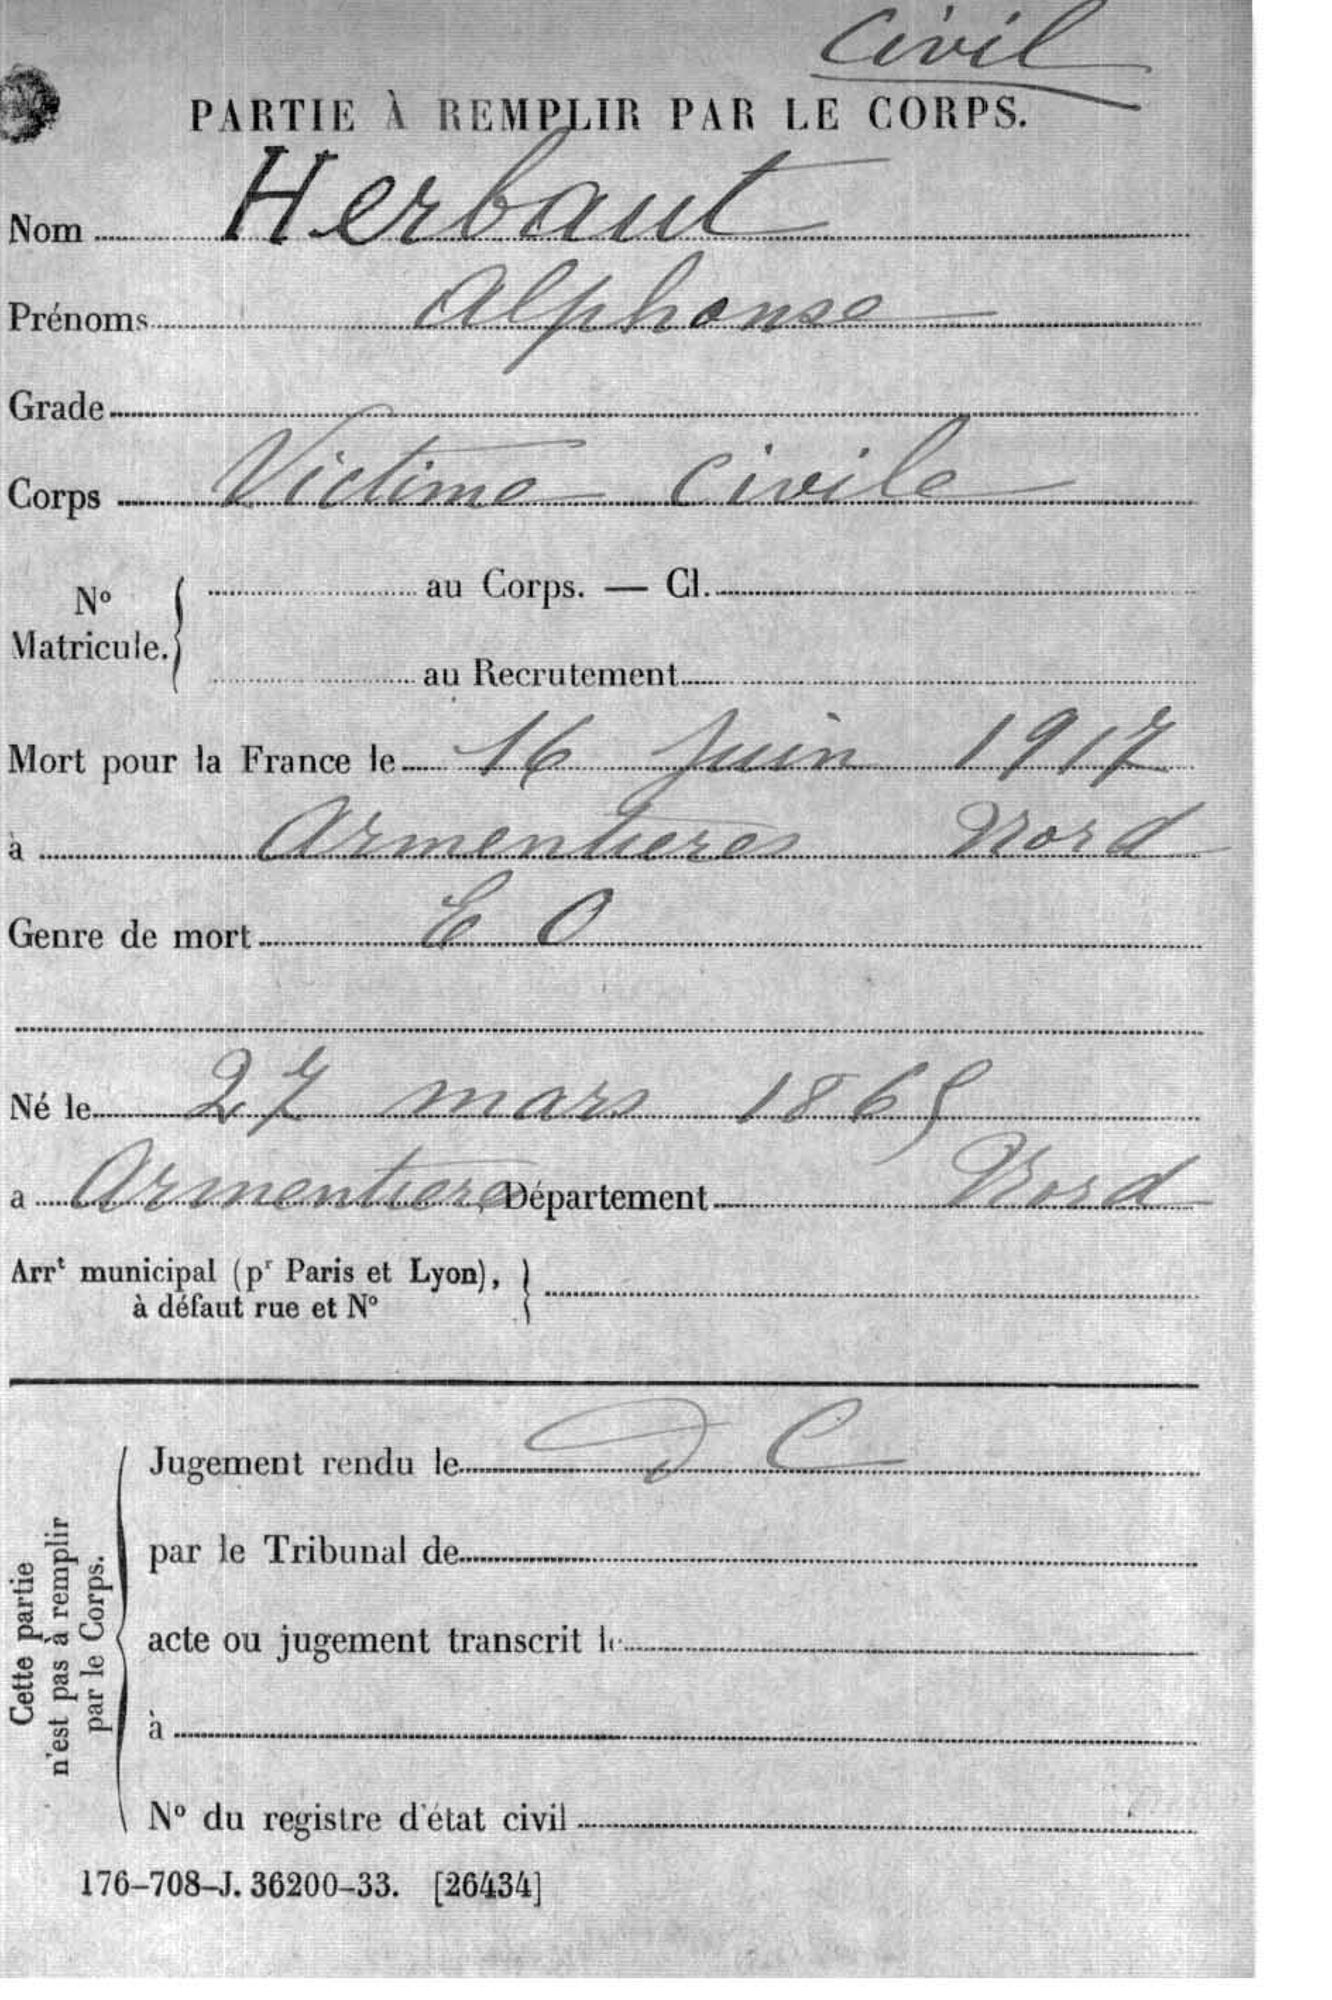 Civil
PARTIE À REMPLIR PAR LE CORPS.
Nom Herbaut
Prénoms Alphonse
Grade
Corps Victime Civile
No au Corps. — Cl.
Matricule.
au Recrutement
Mort pour la France le 16 Juin 1917
à Armentieres Nord
Genre de mort E O
Né le 27 mars 1865
a Armentieres Département Nord
Arrt municipal (pr Paris et Lyon),
à défaut rue et No
Cette partie
n'est pas à remplir
par le Corps.
Jugement rendu le D C
par le Tribunal de
acte ou jugement transcrit le
à
No du registre d'état civil
176-708-J. 36200-33. [26434]